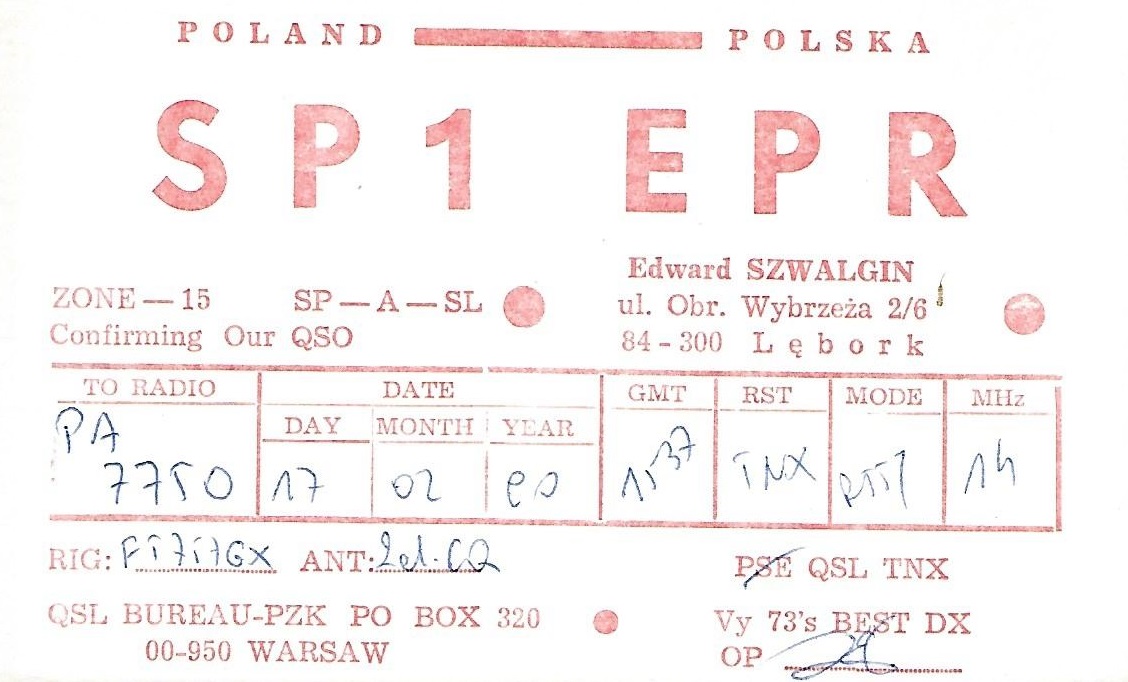 POLAND POLSKA
SP1 EPR
Edward SZWALGIN
ZONE — 15 SP — A — SL ul. Obr. Wybrzeża 2/6
Confirming Our QSO 84-300 Lębork
TO RADIO DATE GMT RST MODE MHz
DAY MONTH YEAR
PA
7750 17 02 80 15 37 TNX RTTY 14
RIG: ANT: 2el. CQ PSE QSL TNX
QSL BUREAU-PZK PO BOX 320 Vy 73's BEST DX
00-950 WARSAW OP